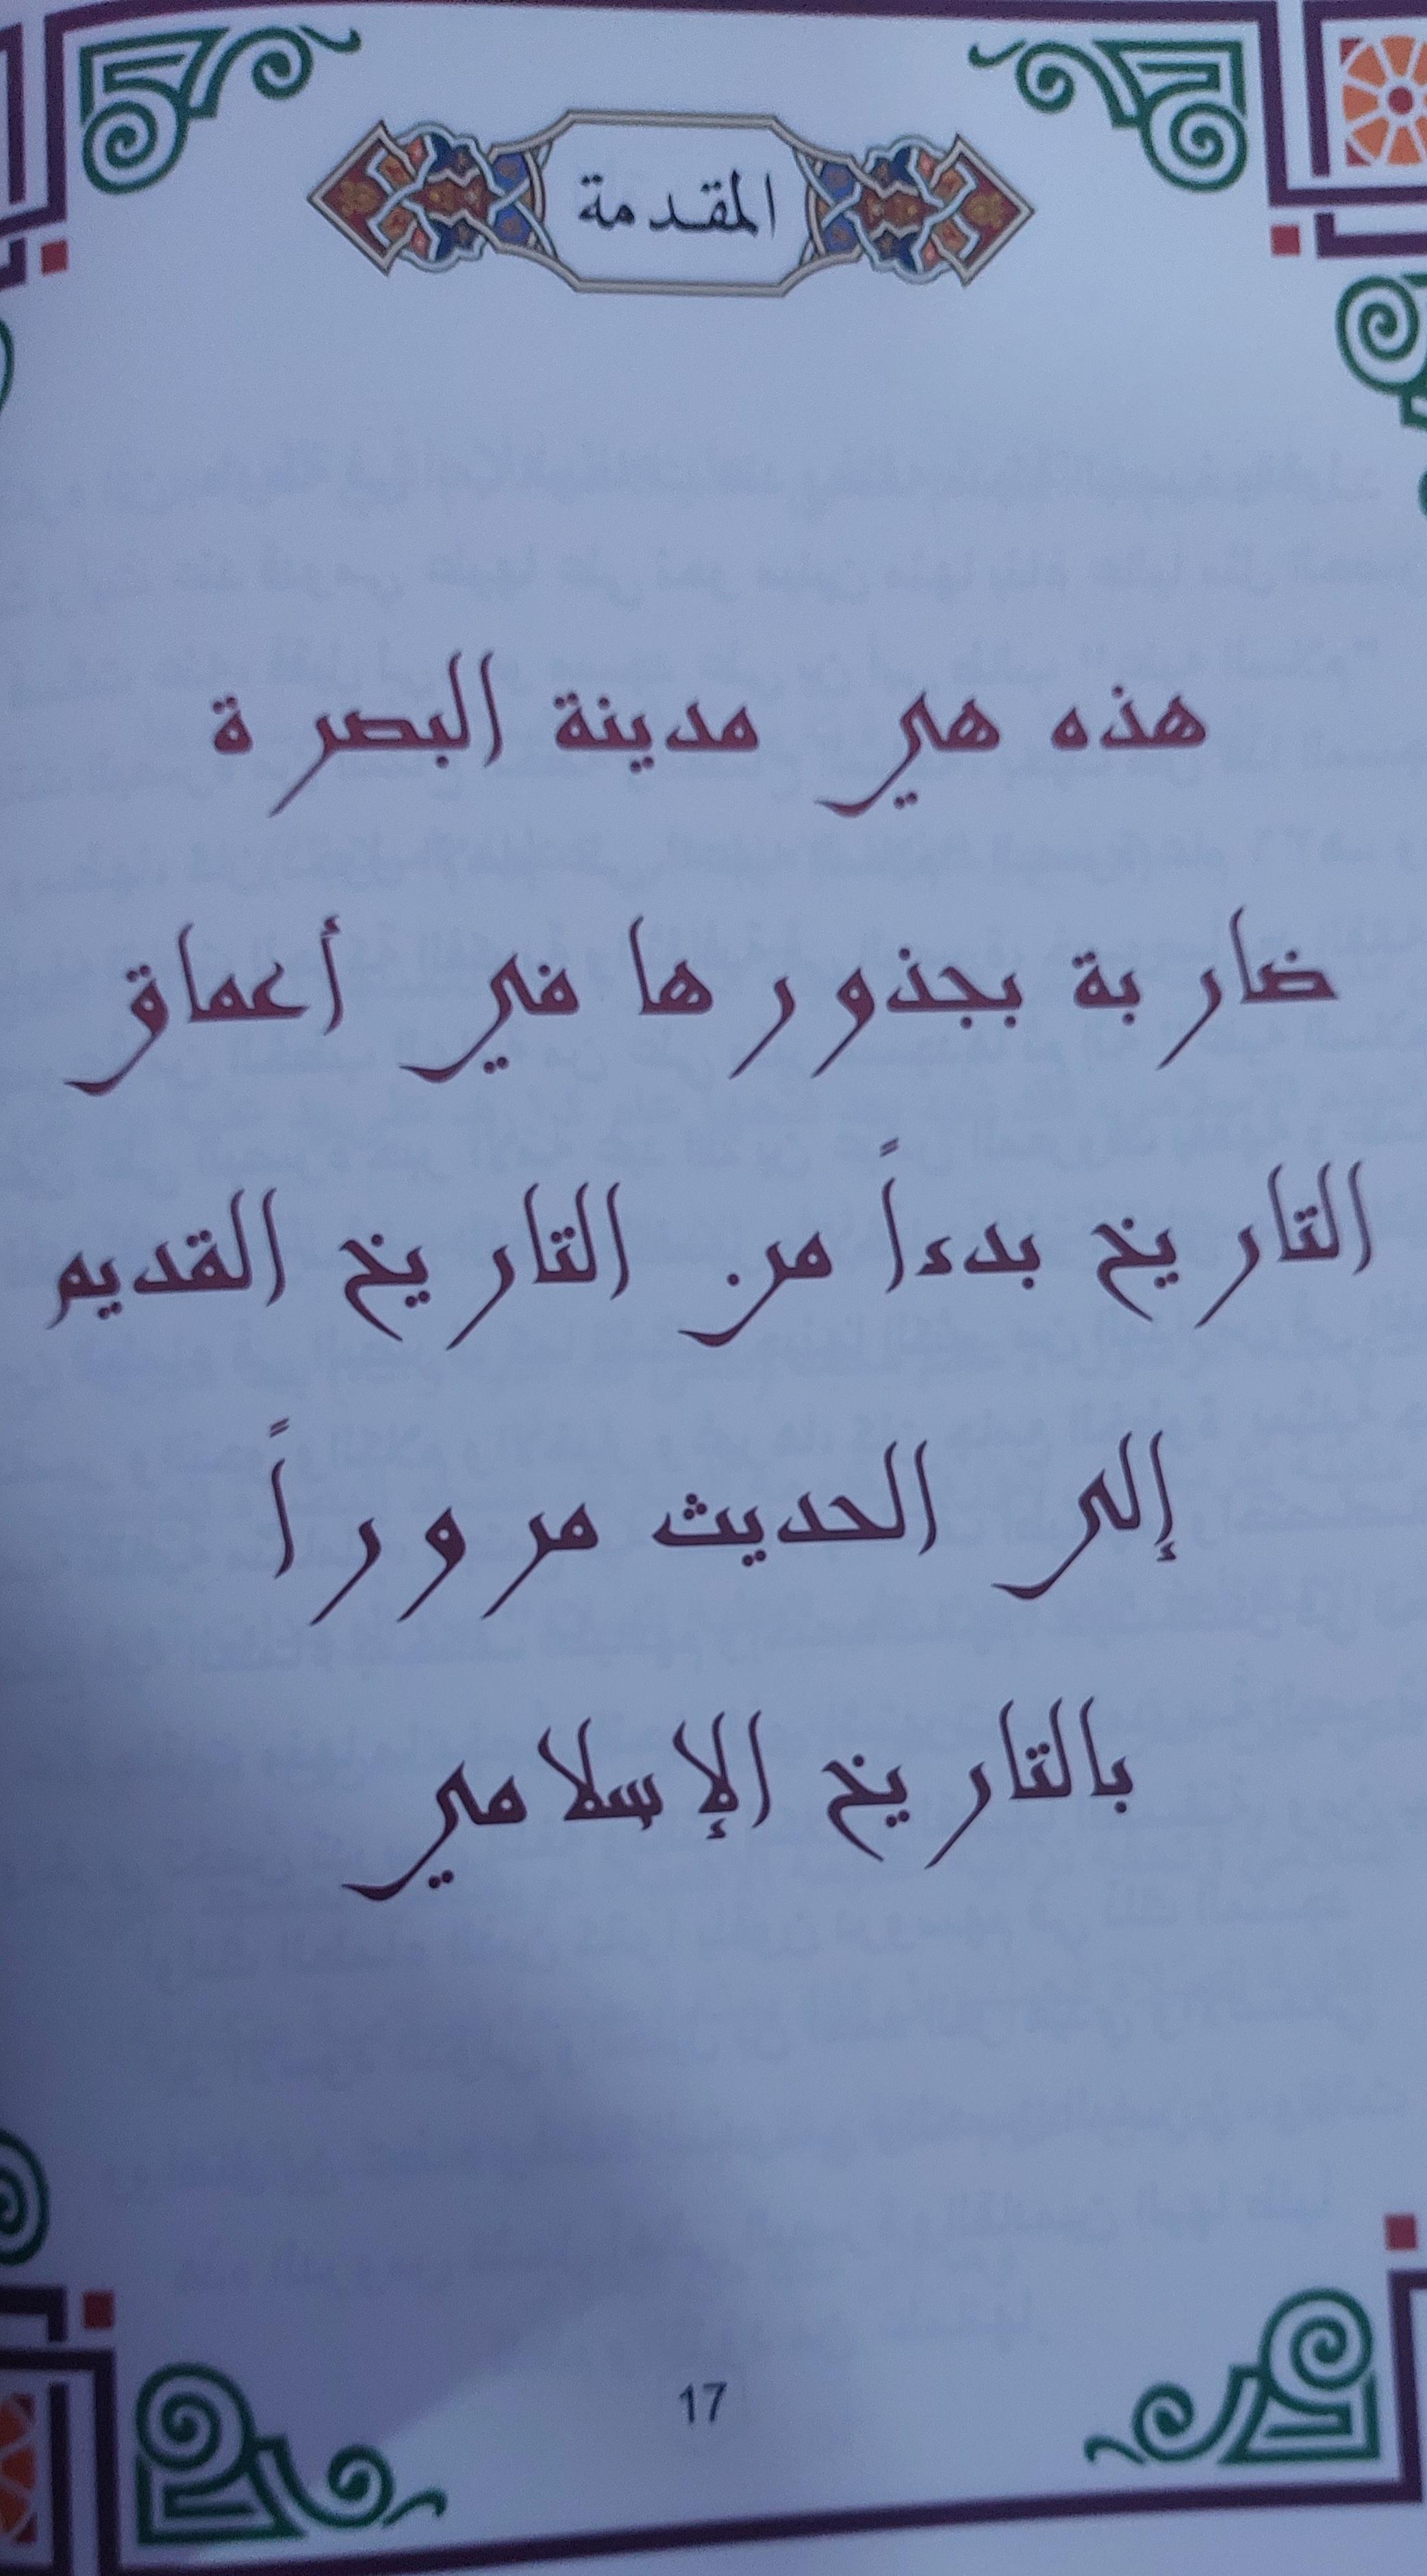 المقدمة
هذه هي مدينة البصرة
ضاربة بجذورها في أعماق
التاريخ بدءاً من التاريخ القديم
إلى الحديث مروراً
بالتاريخ الإسلامي
17